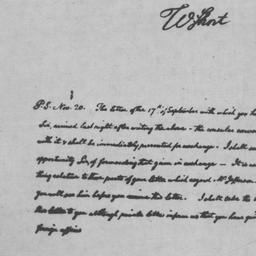 W Short
P.S. Nov. 20. The letter of the 17th of September with which you ho
Sir, arrived last night after writing the above - the
with it & shall be immediately presented for exchange. I shall
opportunity Sir, of forwarding that given in exchange - It is
thing relative to those parts of your letter which regard Mr. Jefferson
you will see him before you receive this letter. I shall take the
this letter to you although private letters inform us that you have
foreign affairs